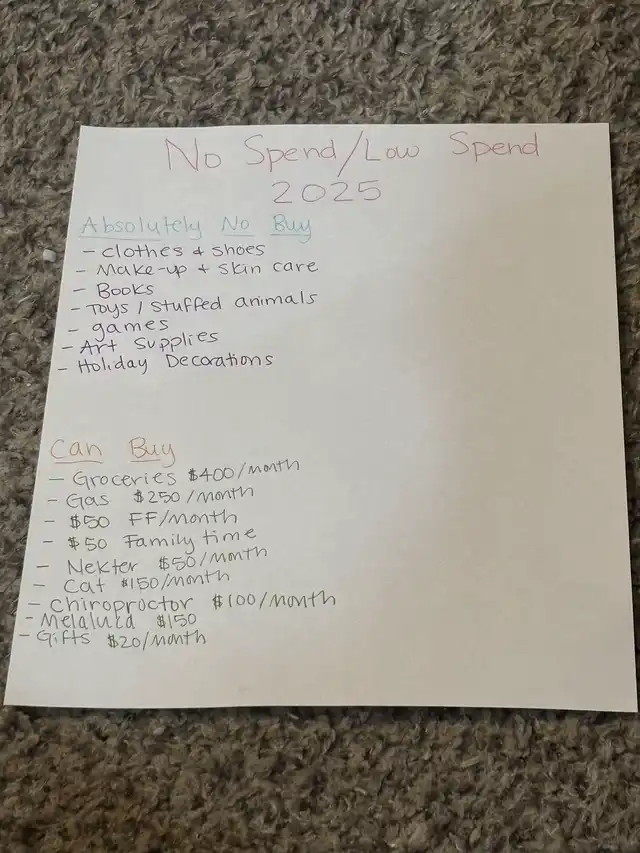 No Spend/Low Spend
2025
Absolutely No Buy
- clothes & shoes
- Make-up & skin care
- Books
- Toys / stuffed animals
- games
- Art Supplies
- Holiday Decorations
Can Buy
- Groceries $400/month
- Gas $250/month
- $50 FF/month
- $50 Family time
- Nekter $50/month
- Cat $150/month
- chiroproctor $100/month
- Melaluca $150
- Gifts $20/month